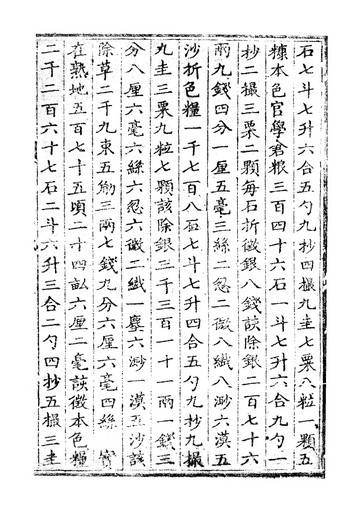 石七斗七升六合五勺九抄四撮九圭七粟八粒一顆五
糠本色官學倉粮三百四十六石一斗七升六合九勺一
抄二撮三粟二顆每石折徵銀八錢該除銀二百七十六
兩九錢四分一厘五毫三絲二忽二微八纖八渺六漠五
沙折色糧一千七百八石七斗七升四合五勺九抄九撮
九圭三粟九粒七顆該除銀三千三百一十一兩一錢三
分八厘六毫六絲六忽六微二纖一塵六渺一漠五沙該
除草二千九束五觔三兩七錢九分六厘六毫四絲 實
在熟地五百七十五頃二十四畝六厘二毫該徵本色糧
二千二百六十七石二斗六升三合二勺四抄五撮三圭